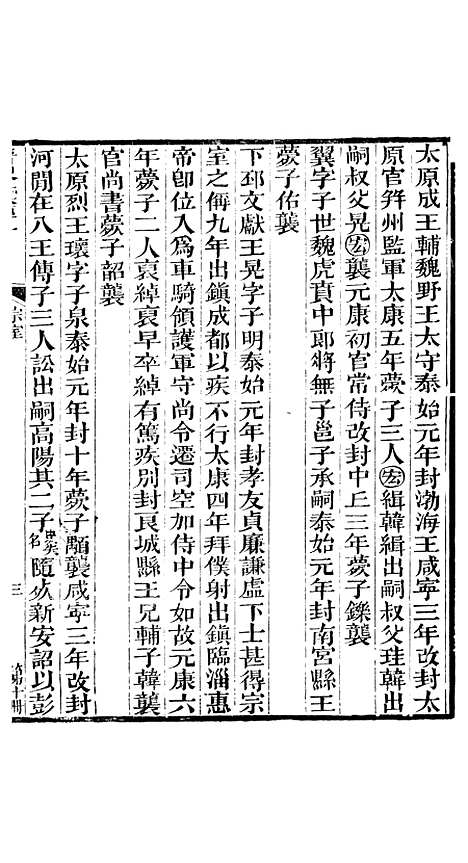 太原成王輔魏野王太守泰始元年封渤海王咸寧三年改封太
原官幷州監軍太康五年薨子三人宏緝韓緝出嗣叔父珪韓出
嗣叔父晃宏襲元康初官常侍改封中上三年薨子鑠襲
翼字子世魏虎賁中郎將無子邕子承嗣泰始元年封南宮縣王
薨子佑襲
下邳文獻王晃字子明泰始元年封孝友貞廉謙虛下士甚得宗
室之侮九年出鎭成都以疾不行太康四年拜僕射出鎭臨淄惠
帝卽位入爲車騎領護軍守尚令遷司空加侍中令如故元康六
年薨子二人裒綽裒早卒綽有篤疾別封良城縣王兄輔子韓襲
官尚書薨子韶襲
太原烈王瓌字子泉泰始元年封十年薨子顒襲咸寧三年改封
河閒在八王傳子三人訟出嗣高陽其二子名隨死新安詔以彭
宗室
三
第十册